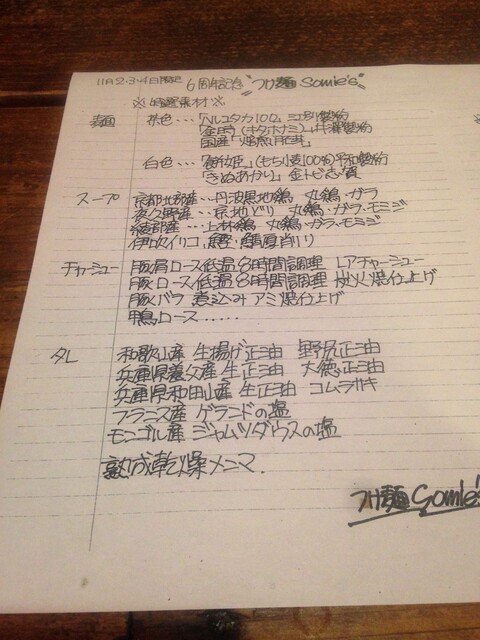 11月2・3・4日限定 6周年記念 "つけ麺 Somie's"
※厳選素材※
麺 茶色…「ハルユタカ100」江別製粉
「金時(キタホナミ)」井澤製粉
国産「焙煎胚芽」
白色…「もち姫」(もち小麦100%)平和製粉
「きぬあかり」金トビ志賀
スープ 京都北部産…丹波黒地鶏 丸鶏・ガラ
夜久野産…京地どり 丸鶏・ガラ・モミジ
綾部産…上林鶏 丸鶏・ガラ・モミジ
伊吹イリコ、鰹・鯖厚削り
チャーシュー 豚肩ロース低温8時間調理 レアチャーシュー
豚ロース低温8時間調理 炭火焼仕上げ
豚バラ 煮込み アミ焼仕上げ
鴨ロース……
タレ 和歌山産 生揚げ正油 野尻正油
兵庫県養父産 生正油 大徳正油
兵庫県和田山産 生正油 コムラサキ
フランス産 ゲランドの塩
モンゴル産 ジャムツダウスの塩
熟成乾燥メンマ.
つけ麺 Somie's